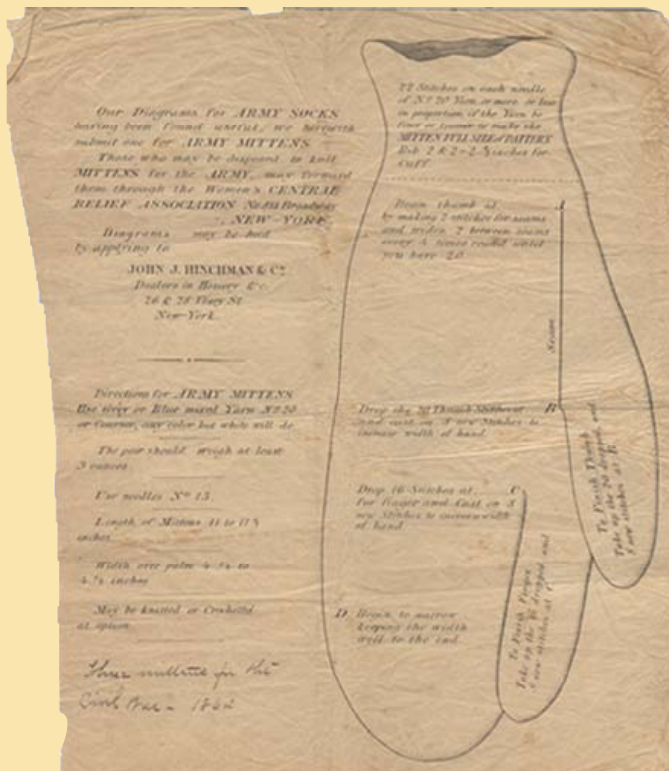 Our Diagrams for ARMY SOCKS
having been found useful, we herewith
submit one for ARMY MITTENS
Those who may be disposed to knit
MITTENS for the ARMY, may forward
them through the Women's CENTRAL
RELIEF ASSOCIATION Broadway
NEW-YORK.
Diagrams may be had
by applying to
JOHN J. HINCHMAN & Co
Dealers in Hosiery &c.
26 & 28 Vesey St
New-York.
Directions for ARMY MITTENS
Use Grey or Blue mixed Yarn No 20
or Coarser, any color but white will do.
The pair should weigh at least
3 ounces
Use needles No 15
Length of Mittens 11 to
inches
Width over palm
inches
May be knitted or Crocheted
at option
These mittens for the
Civil War - 1862
22 Stitches on each needle
of No 20 Yarn, or more or less
in proportion if the Yarn be
finer or coarser to make the
MITTEN FULL SIZE of PATTERN
Rib 2 & 2 - inches for
Cuff
Begin thumb at A
by making 2 stitches for seams
and widen 2 between seams
every 4 times round until
you have 20
Seam
Drop the 20 Thumb Stitches at B
and cast on 8 new Stitches to
increase width of hand
Drop 16 Stitches at C
for finger and Cast on 8
new Stitches to increase width
of hand
D Begin to narrow
keeping the width
well to the end
To Finish Thumb
Take up the 20 dropped and
8 new stitches at B
To Finish Finger
Take up the 16 dropped and
8 new stitches at C